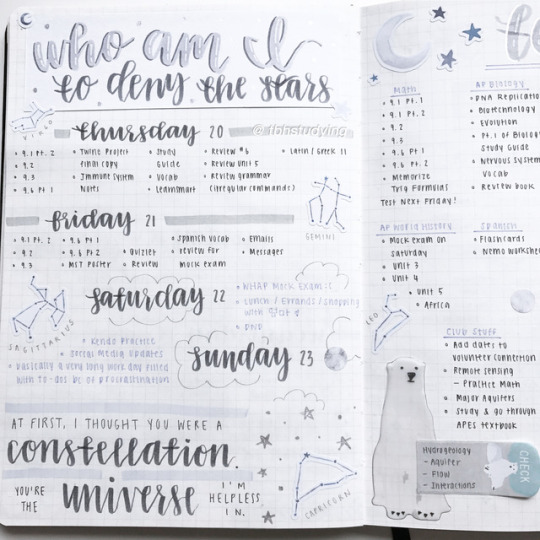 who am I
to deny the stars
VIRGO
thursday 20
@tbhstudying
• 9.1 Pt. 1
• 9.2
• 9.3
• 9.6 Pt 1
• Twine Project
Final Copy
• Immune System
Notes
• Study
Guide
• Vocab
• Learnsmart
• Review #6
• Review Unit 5
• Review grammar
(irregular commands)
• Latin / Greek 11
GEMINI
friday 21
• 9.1 Pt. 2
• 9.2
• 9.3
• 9.6 Pt 1
• 9.6 Pt 2
• MST Poster
• Quizlet
• Review
• Spanish Vocab
• Review for
mock exam
• Emails
• Messages
SAGITTARIUS
saturday 22
• WHAP Mock Exam :(
• Lunch / Errands / Shopping
with 엄마
• DND
• Kendo Practice
• Social Media Updates
• Basically a very long work day filled
with to-dos bc of procrastination
sunday 23
AT FIRST, I THOUGHT YOU WERE A
constellation.
YOU'RE
THE
universe
I'M
HELPLESS
IN.
CAPRICORN
Math
• 9.1 Pt. 1
• 9.1 Pt. 2
• 9.2
• 9.3
• 9.6 Pt 1
• 9.6 Pt 2
• Memorize
Trig Formulas
Test Next Friday!
AP Biology
• DNA Replicatio
• Biotechnology
• Evolution
• Pt. 1 of Biology
Study Guide
• Nervous System
Vocab
• Review book
AP World History
• Mock Exam on
Saturday
• Unit 3
• Unit 4
• Unit 5
• Africa
Spanish
• Flashcards
• Nemo Workshe
LEO
Club Stuff
• Add dates to
Volunteer Connection
• Remote Sensing
- Practice Math
• Major Aquifers
• Study & go through
APES textbook
Hydrogeology
- Aquifer
- Flow
- Interactions
CHECK